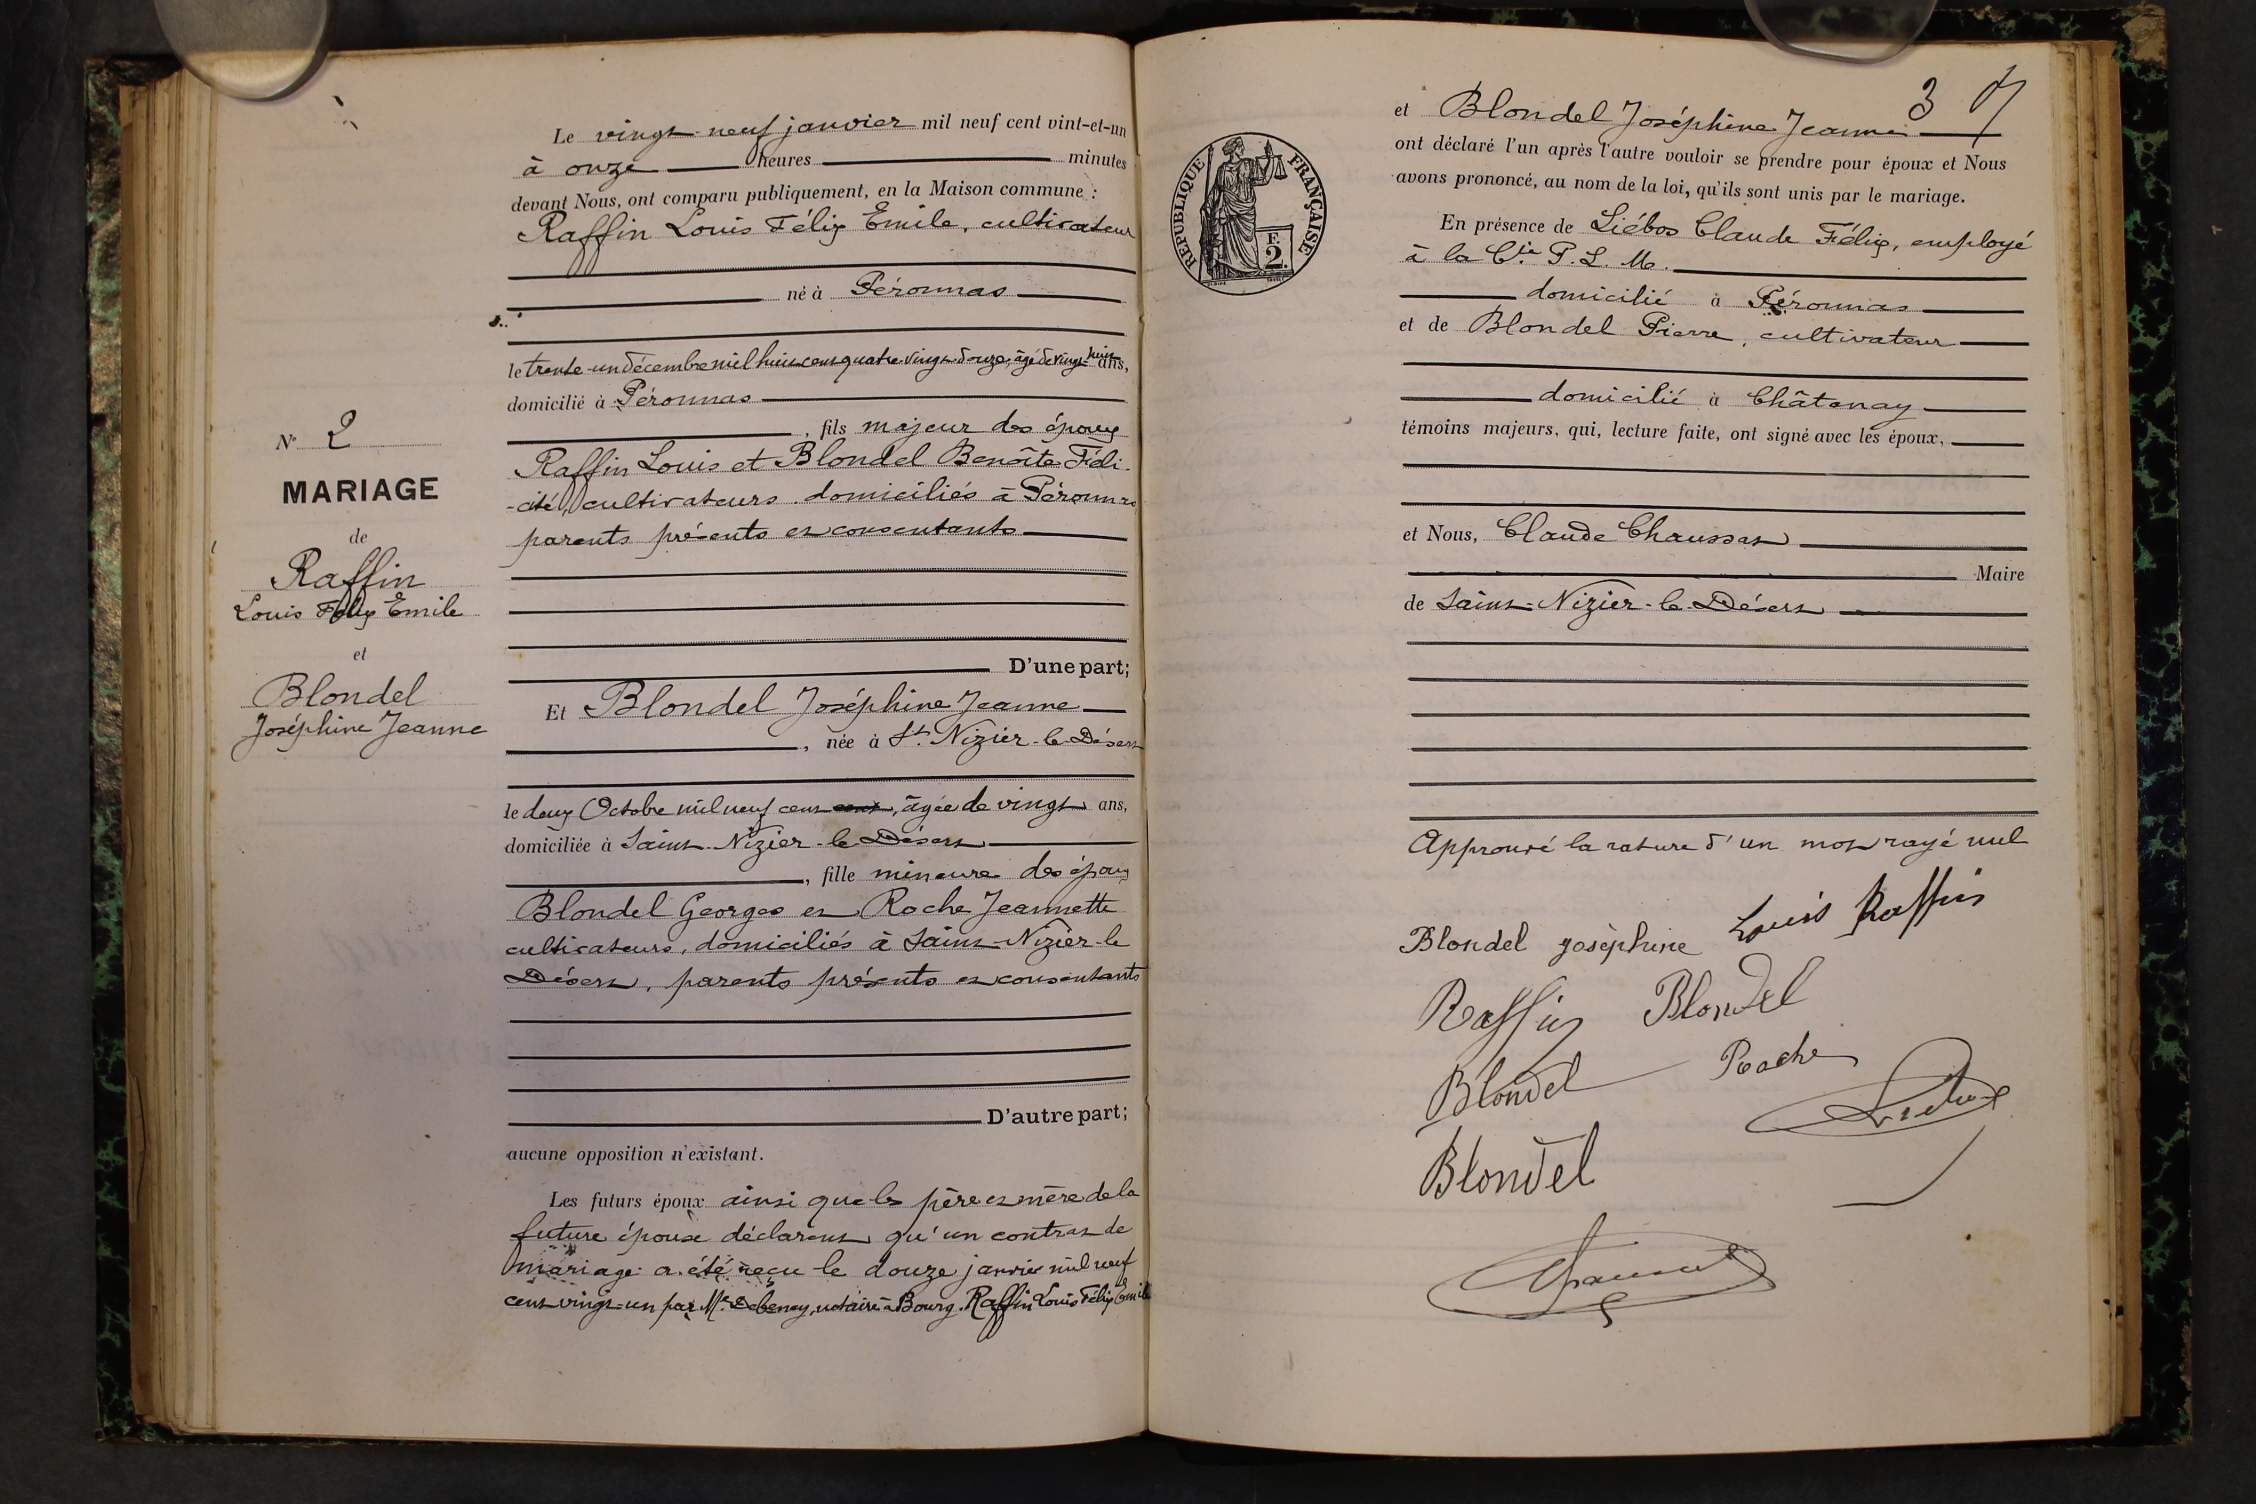 Le vingt-neuf janvier mil neuf cent vint-et-un
à onze heures minutes
devant Nous, ont comparu publiquement, en la Maison commune :
Raffin Louis Félix Emile, cultivateur
né à Péronnas
le trente-un décembre mil huit cent quatre-vingt-douze, âgé de vingt-huit ans,
domicilié à Péronnas
, fils majeur des époux
Raffin Louis et Blondel Benoîte Féli-
-cité, cultivateurs domiciliés à Péronnas
parents présents et consentants
D'une part;
Et Blondel Joséphine Jeanne
, née à St Nizier-le-Désert
le deux Octobre mil neuf cent cent, âgée de vingt ans,
domiciliée à Saint-Nizier-le-Désert
, fille mineure des époux
Blondel Georges et Roche Jeannette
cultivateurs, domiciliés à Saint-Nizier-le
Désert, parents présents et consentants
D'autre part;
aucune opposition n'existant.
Les futurs époux ainsi que les père et mère de la
future épouse déclarent qu'un contrat de
mariage a été reçu le douze janvier mil neuf
cent vingt-un par Me Debeney, notaire à Bourg. Raffin Louis Félix Emile
N° 2
MARIAGE
de
Raffin
Louis Félix Emile
et
Blondel
Joséphine Jeanne
3
RÉPUBLIQUE FRANÇAISE
F.
2
et Blondel Joséphine Jeanne
ont déclaré l'un après l'autre vouloir se prendre pour époux et Nous
avons prononcé, au nom de la loi, qu'ils sont unis par le mariage.
En présence de Liébos Claude Félix, employé
à la Cie P. L. M.
domicilié à Péronnas
et de Blondel Pierre, cultivateur
domicilié à Châtenay
témoins majeurs, qui, lecture faite, ont signé avec les époux,
et Nous, Claude Chaussat
Maire
de Saint-Nizier-le-Désert
Approuvé la rature d'un mot rayé nul
Blondel Joséphine Louis Raffin
Raffin Blondel
Blondel Roche
Blondel
Chaussat